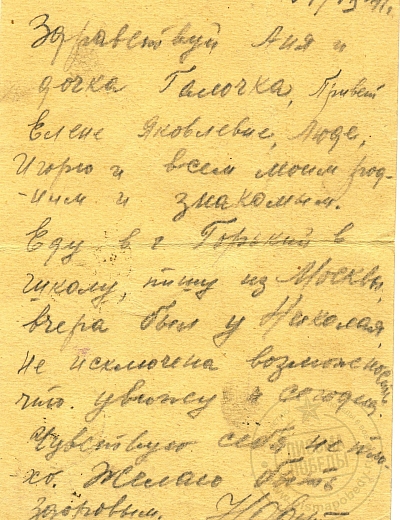 Здравствуй Аня и
дочка Галочка, Привет
Елене Яковлевне, Люде,
Игорю и всем моим род-
-ным и знакомым.
Еду в г Горький в
школу, пишу из Москвы,
вчера был у Николая,
не исключена возможность
что увижу и сегодня.
Чувствую себя не пло-
хо. Желаю быть
здоровым.